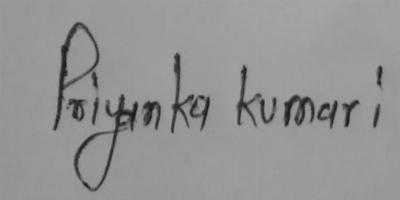 Priyanka kumari